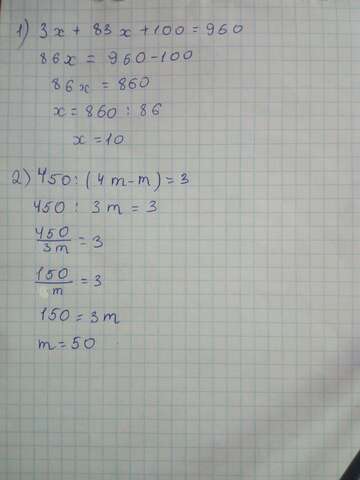 1) 3x + 83x + 100 = 960
86x = 960 - 100
86x = 860
x = 860 : 86
x = 10
2) 450 : (4m - m) = 3
450 : 3m = 3
450/3m = 3
150/m = 3
150 = 3m
m = 50